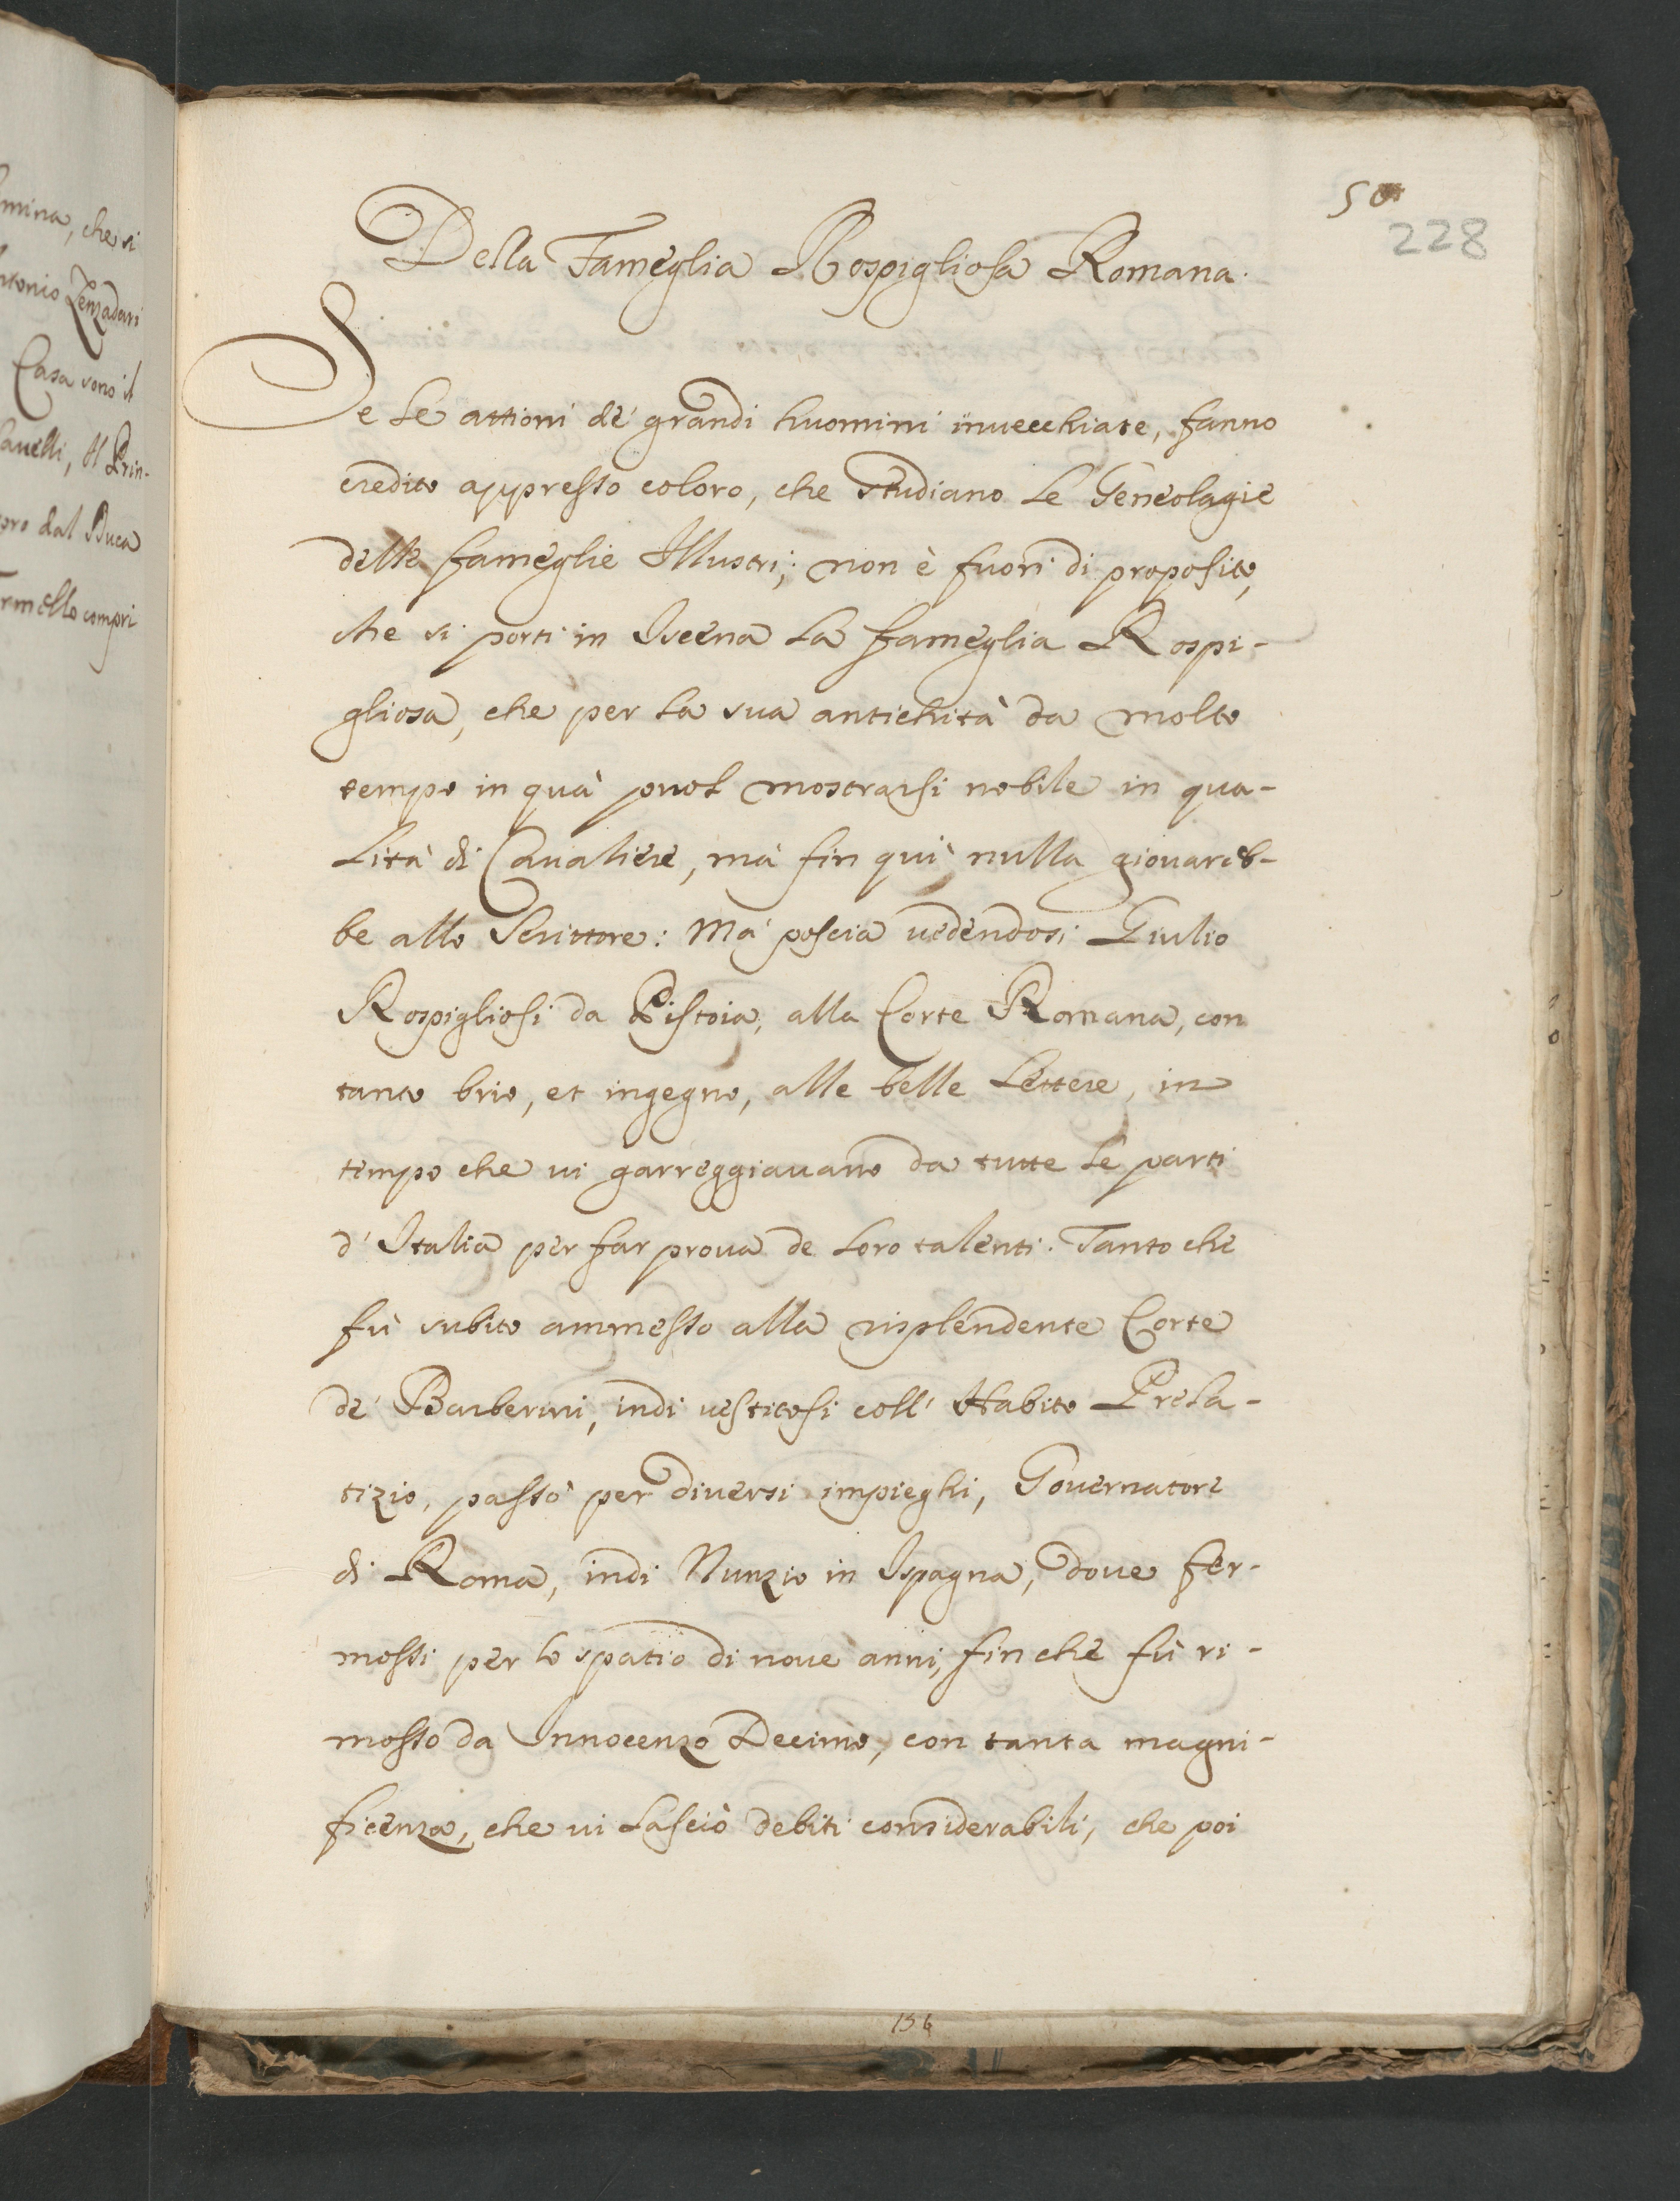 mina, che si
ntonio Zenzadari
Casa sono il
auelli, Il Prin-
pro dal Duca
rmello compri
50
228
Della Fameglia Rospigliosa Romana.
Se le attioni de' grandi huomini inuecchiate, fanno
credito appresso coloro, che studiano le Geneolagie
delle fameglie Illustri; non è fuori di proposito,
che si porti in Iscena la fameglia Rospi-
gliosa, che per la sua antichità da molto
tempo in quà puol mostrarsi nobile in qua-
lità di Caualiere, mà fin quì nulla giouareb-
be allo Scrittore: Mà poscia uedendosi Giulio
Rospigliosi da Pistoia, alla Corte Romana, con
tanto brio, et ingegno, alle belle Lettere, in
tempo che ui garreggiauano da tutte le parti
d' Italia per far proua de loro talenti. Tanto che
fù subito ammesso alla risplendente Corte
de' Barberini, indi uestitosi coll' Habito Prela-
tizio, passò per diuersi impieghi, Gouernatore
di Roma, indi Nunzio in Ispagna, doue fer-
mossi per lo spatio di noue anni, fin che fù ri-
mosso da Innocenzo Decimo, con tanta magni-
ficenza, che ui lasciò debiti considerabili, che poi
156